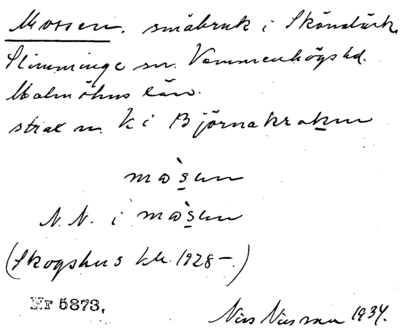 Mossen, småbruk i Skönabäck
Slimminge sn. Vemmenhögs hd.
Malmöhus län.
strax n. k i Björnakroken
må̀sen
N. N. i må̀sen
(Skogshus kb. 1928–.)
Nr 5873.
Nils Nilsson 1934.